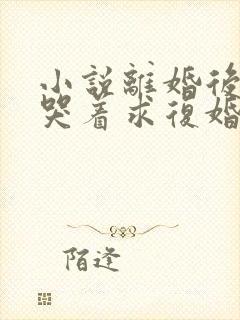 小說離婚後
哭着求復婚
陌逢